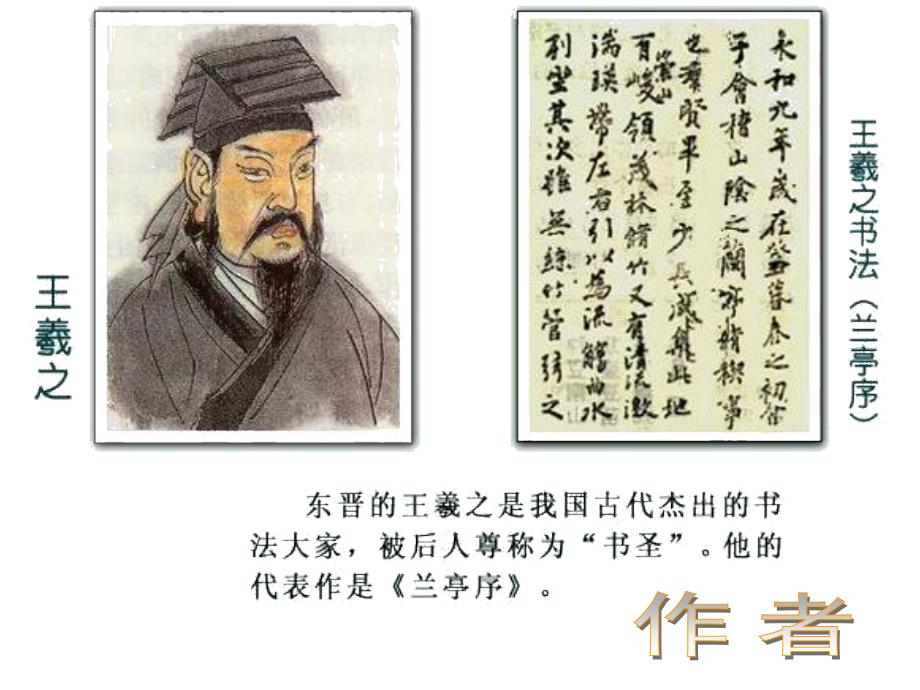 王羲之
永和九年歲在癸丑暮春之初會
于會稽山陰之蘭亭脩禊事
也羣賢畢至少長咸集此地
有崇山峻領茂林脩竹又有清流激
湍暎帶左右引以為流觴曲水
列坐其次雖無絲竹管弦之
王羲之书法（兰亭序）
东晋的王羲之是我国古代杰出的书
法大家，被后人尊称为“书圣”。他的
代表作是《兰亭序》。
作者